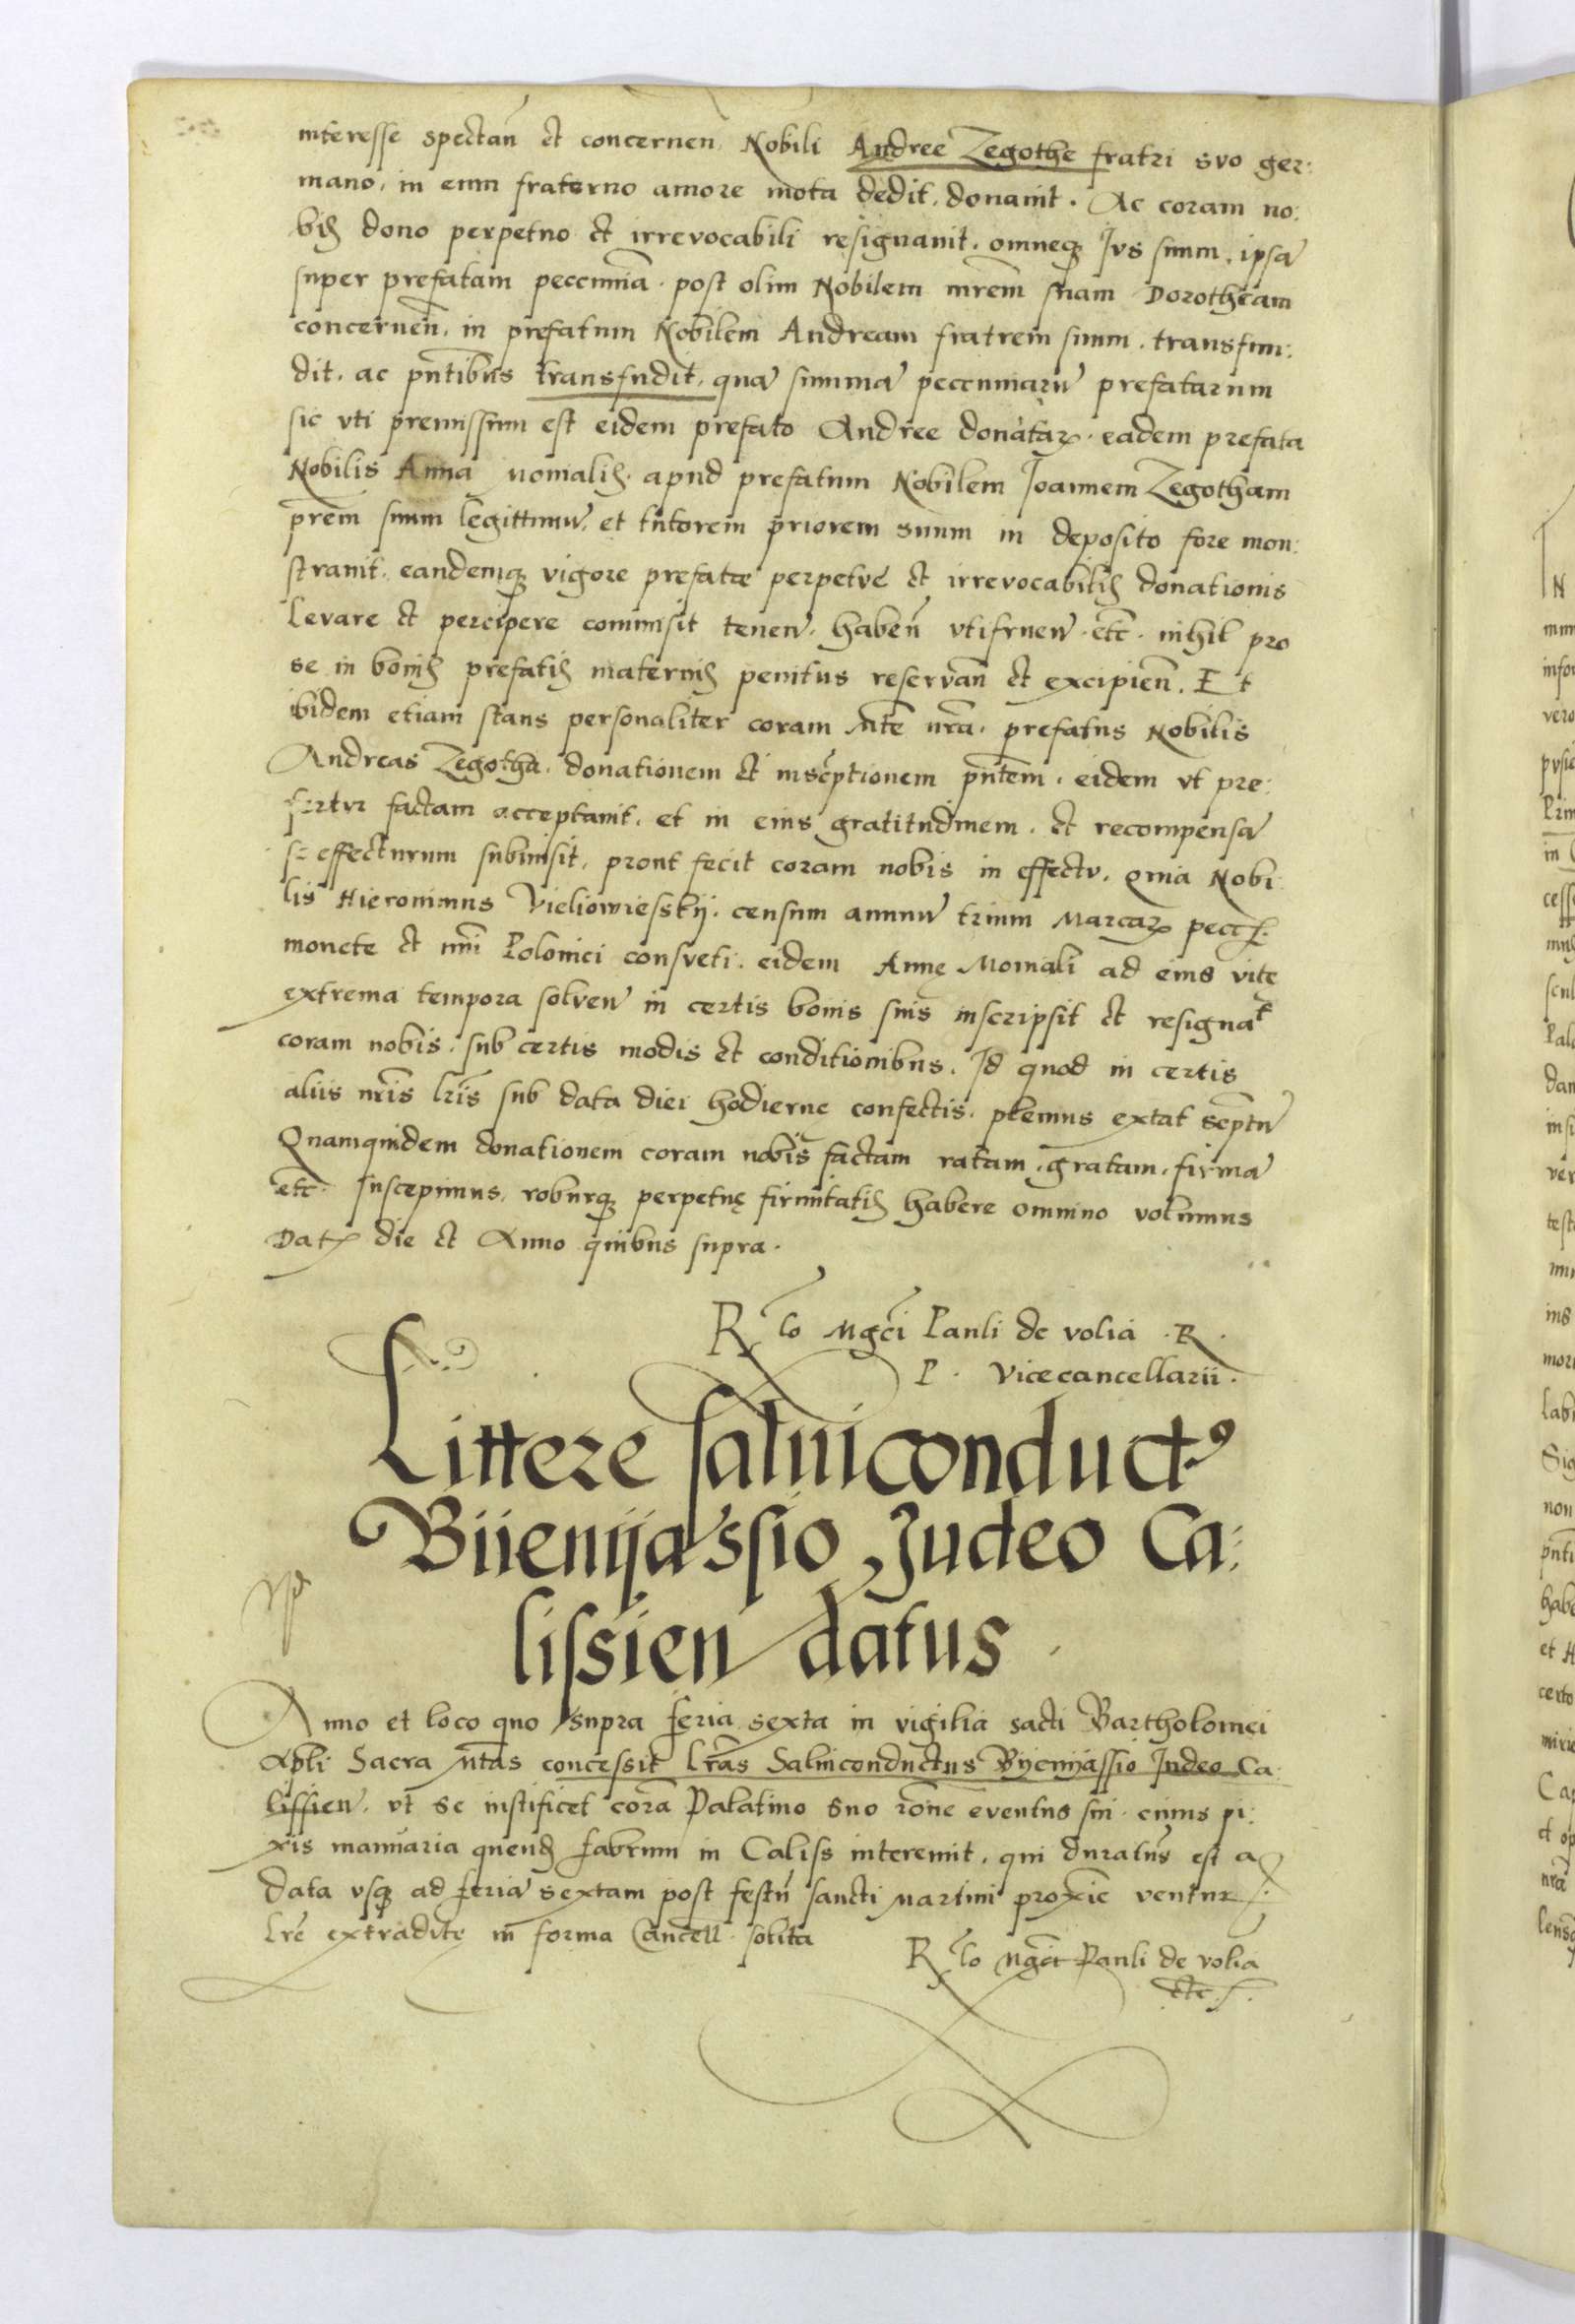 interesse spectan̄ et concernen Nobili Andree Zegothe fratri svo ger:
mano, in eum fraterno amore mota dedit, donauit. Ac coram no:
bis dono perpetuo et irrevocabili resignauit, omneq Jvs suum, ipsa
super prefatam peccuniā post olim Nobilem mrēm suam Dorotheam
concernen̄, in prefatum Nobilem Andream fratrem suum, transfun:
dit, ac pn̄tibus transfudit, qua summa peccuniaru prefatarum
sic vti premissum est eidem prefato Andree donatar, eadem prefata
Nobilis Anna monialis, apud prefatum Nobilem Joannem Zegotham
prēm suum legittimu, et tutorem priorem suum in deposito fore mon:
strauit, eandemq vigore prefatæ perpetvę et irrevocabilis donationis
levare et percipere commisit tenen, haben̄ vtifruen etc̄ nihil pro
se in bonis prefatis maternis penitus reservan̄ et excipien̄. Et
ibidem etiam stans personaliter coram Mte nrā, prefatus Nobilis
Andreas Zegotha, donationem et inscēptionem pn̄tem, eidem vt pre:
fertvr factam acceptauit, et in eius gratitudinem, et recompensa
se effecturum submisit, prout fecit coram nobis in effectv, Quia Nobi:
lis Hieronimus Vieliowiesskij, censum annuu trium Marcar pecc
monete et nūi Polonici consveti, eidem Annę Moniali ad eius vite
extrema tempora solven in certis bonis suis inscripsit et resignat
coram nobis, sub certis modis et conditionibus, Id quod in certis
aliis nrīs lrīs sub data diei hodierne confectis, plenius extat scēptu
Quamquidem donationem coram nobis factam ratam, gratam, firma
etc̄ suscepimus, roburq perpetuę firmitatis habere omnino volumus
Dat die et Anno quibus supra.
R lo Mgci Pauli de volia R
P. Vicecancellarii.
Littere salviconduct9
Biienijassio Judeo Ca:
lissien datus
Anno et loco quo supra feria sexta in vigilia sācti Bartholomei
Apli Sacra Mtas concessit lrās Salviconductus Bijenijassio Judeo Ca:
lissien, vt se iustificet corā Palatino suo rōne eventus sui, cuius pi:
xis manuaria quend fabrum in Caliss interemit, qui duratūs est a
data vsq ad feria sextam post festū sancti Martini proxīe ventur
lrē extradite in forma Cancell solita
R lo Mgci Pauli de volia
etc̄